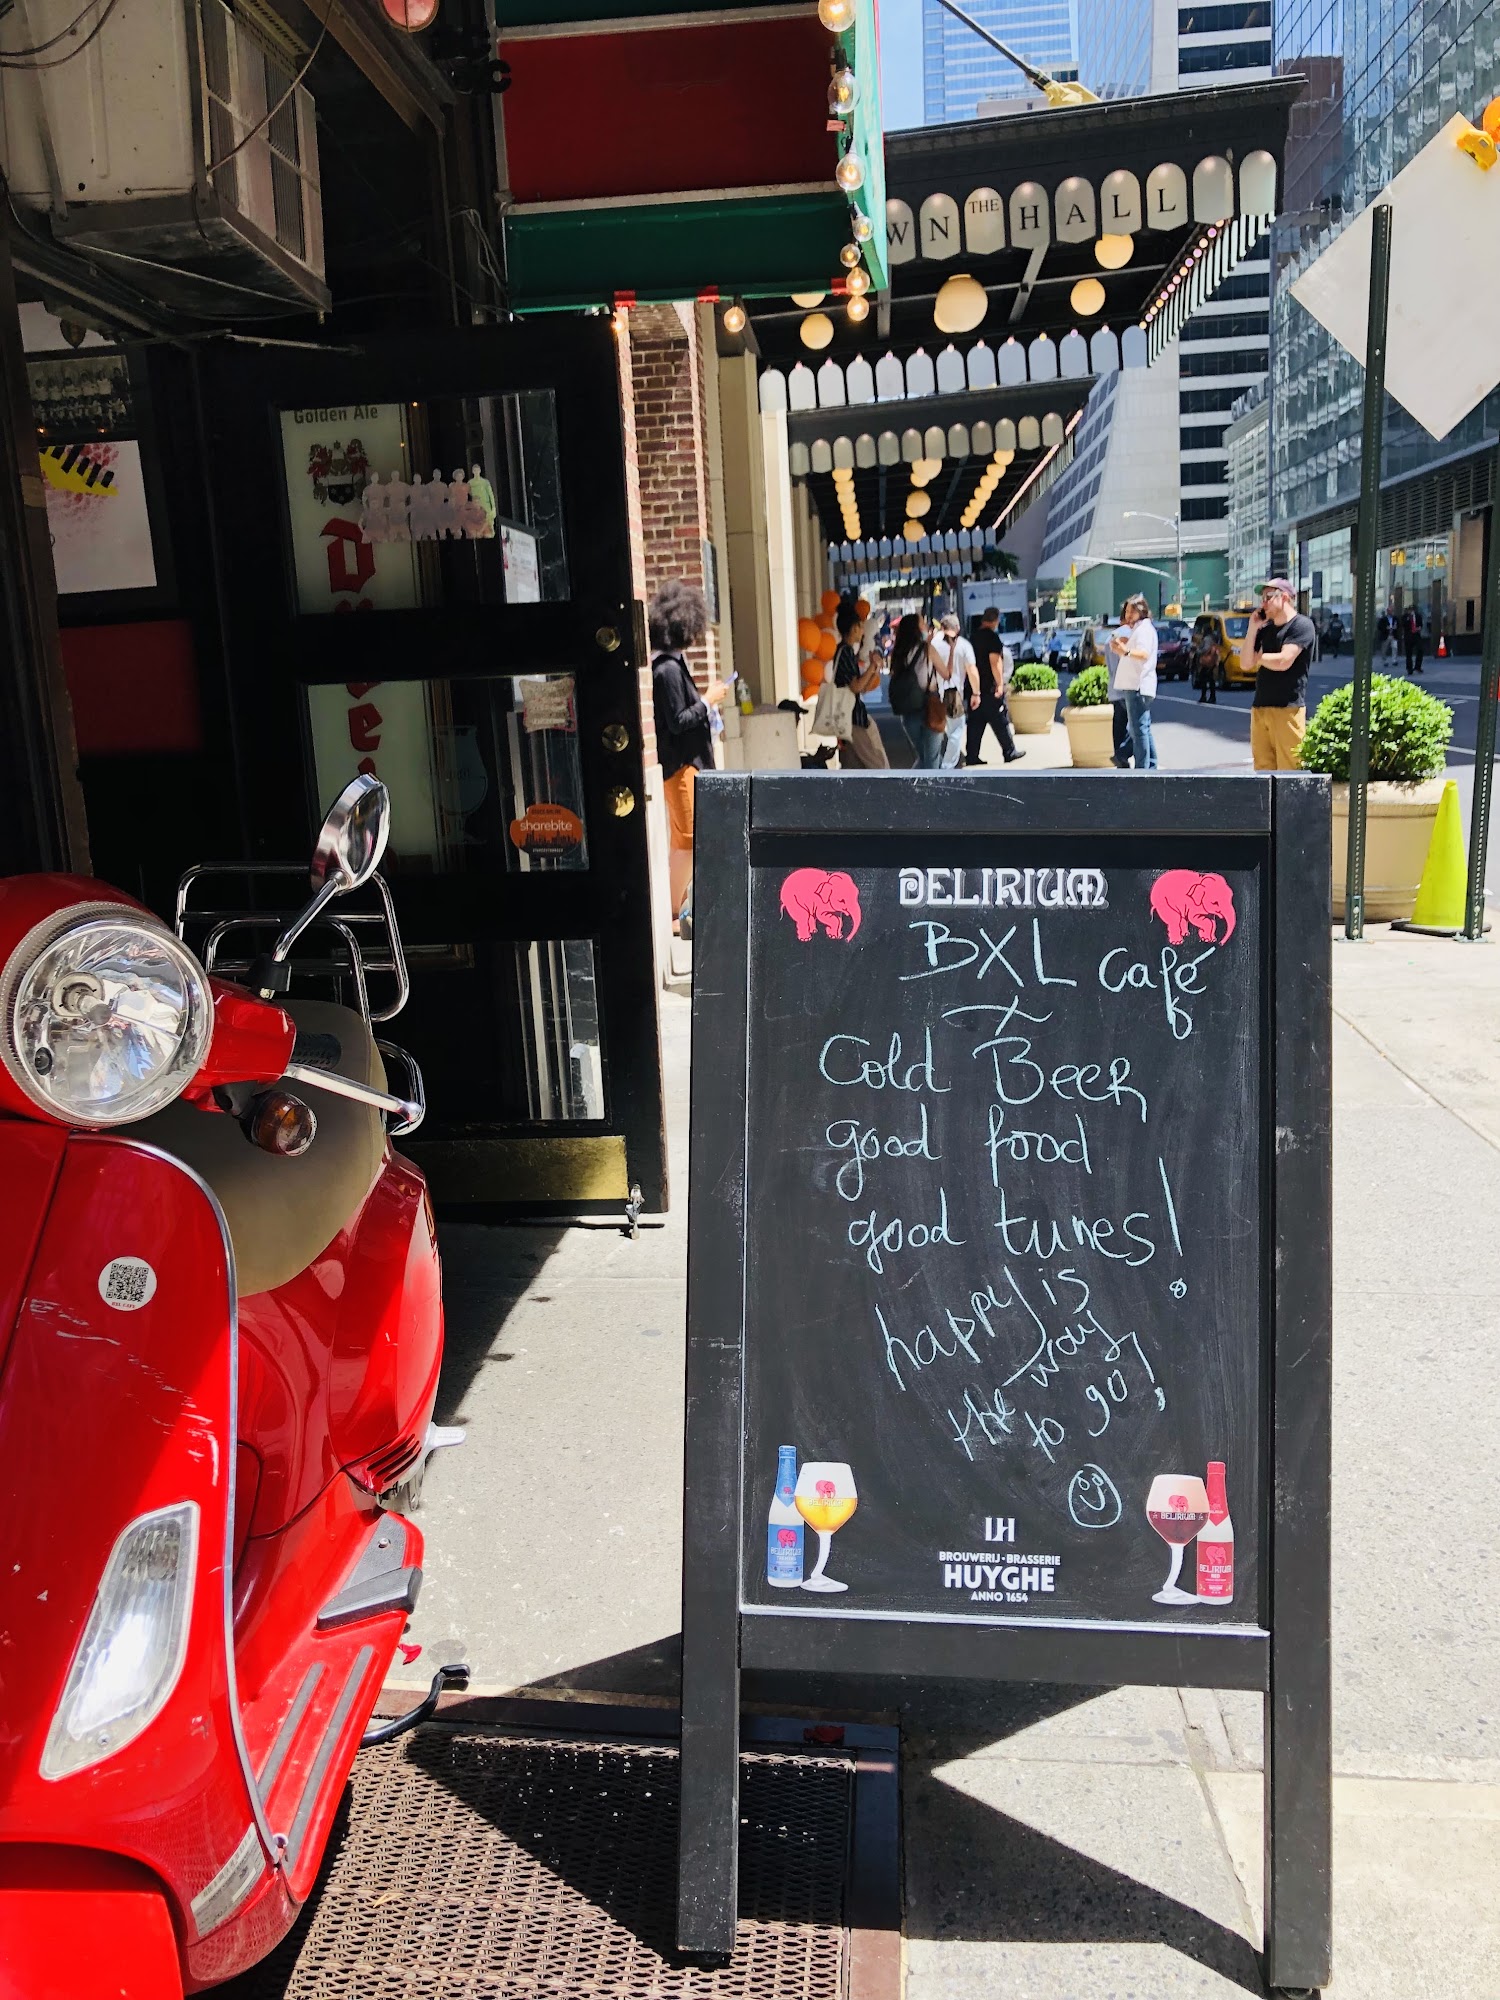 WN THE HALL
Golden Ale
Duvel
sharebite
DELIRIUM
BXL Café
Cold BEER
good food
good tunes!
happy is
the way
to go!
DELIRIUM
DELIRIUM
DELIRIUM
DELIRIUM
LH
BROUWERIJ-BRASSERIE
HUYGHE
ANNO 1654
BXL CAFE